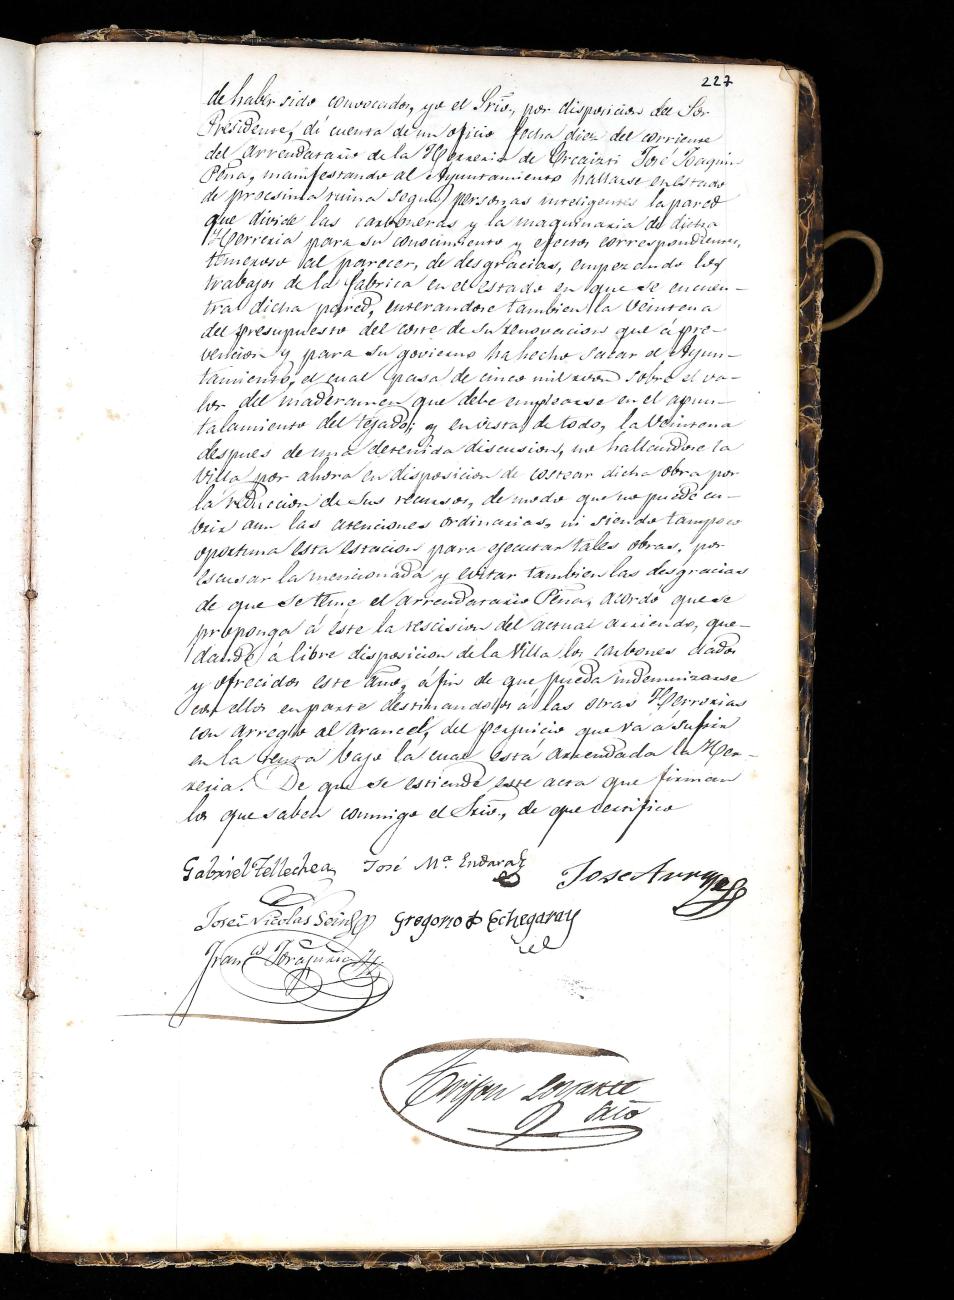 227
de haber sido convocados, yo el Srio, por disposicion del Sor
Presidente, dí cuenta de un oficio fecha diez del corriente
del arrendatario de la Herreria de Articuza José Joaquin
Peña, manifestando al Ayuntamiento hallarse en estado
de procsima ruina segun personas inteligentes la pared
que divide las carboneras y la maquinaria de dicha
Herreria para su conocimiento y efectos correspondientes,
temeroso al parecer, de desgracias, empezando los
trabajos de la fabrica en el estado en que se encuen-
tra dicha pared, enterandose tambien la Veintena
del presupuesto del coste de su renovacion que á pre-
vencion y para su govierno ha hecho sacar el Ayun-
tamiento, el cual pasa de cinco mil sobre el va-
lor del maderamen que debe emplearse en el apun-
talamiento del tejado; y en vista de todo, la Veintena
despues de una detenida discusion, no hallandose la
Villa por ahora en disposicion de costear dicha obra por
la reduccion de sus recursos, de modo que no puede cu-
brir aun las atenciones ordinarias, ni siendo tampoco
oportuna esta estacion para ejecutar tales obras, por
escusar la mencionada y evitar tambien las desgracias
de que se teme el arrendatario Peña, acordó que se
proponga á éste la rescision del actual arriendo, que-
dando á libre disposicion de la Villa los carbones dados
y ofrecidos este año, á fin de que pueda indemnizarse
con ellos en parte destinandolos á las otras Herrerias
con arreglo al arancel, del perjuicio que va á sufrir
en la renta bajo la cual está arrendada la Her-
reria. De que se estiende este acta que firman
los que saben conmigo el Srio, de que certifico
Gabriel Tellechea José Ma. Endara José Array
José Nicolas Gregorio de Echegaray
Franco
Srio